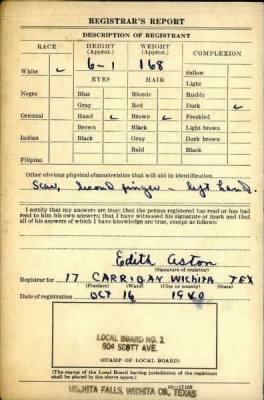 REGISTRAR'S REPORT
DESCRIPTION OF REGISTRANT
RACE HEIGHT (Approx.) WEIGHT (Approx.) COMPLEXION
6-1 168
White ✓ Sallow
EYES HAIR Light
Negro Blue Blonde Ruddy
Gray Red Dark ✓
Oriental Hazel ✓ Brown ✓ Freckled
Brown Black Light brown
Indian Black Gray Dark brown
Bald Black
Filipino
Other obvious physical characteristics that will aid in identification
Scar, second finger - left hand.
I certify that my answers are true; that the person registered has read or has had
read to him his own answers; that I have witnessed his signature or mark and that
all of his answers of which I have knowledge are true, except as follows:
Edith Aston
(Signature of registrar)
Registrar for 17 CARRIGAN WICHITA TEX
(Precinct) (Ward) (City or county) (State)
Date of registration OCT 16 1940
LOCAL BOARD NO. 1
804 SCOTT AVE.
(STAMP OF LOCAL BOARD)
(The stamp of the Local Board having jurisdiction of the registrant
shall be placed in the above space.)
WICHITA FALLS, WICHITA CO., TEXAS